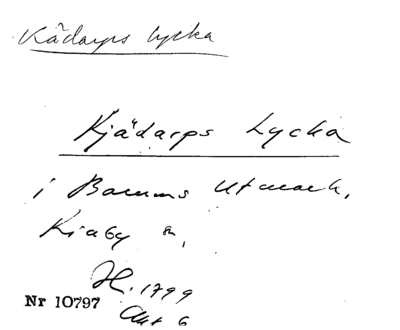 Kädarps lycka
Kjädarps Lycka
i Bamms Utmark,
Kiaby sn,
H. 1799
Nr 10797
Akt 6